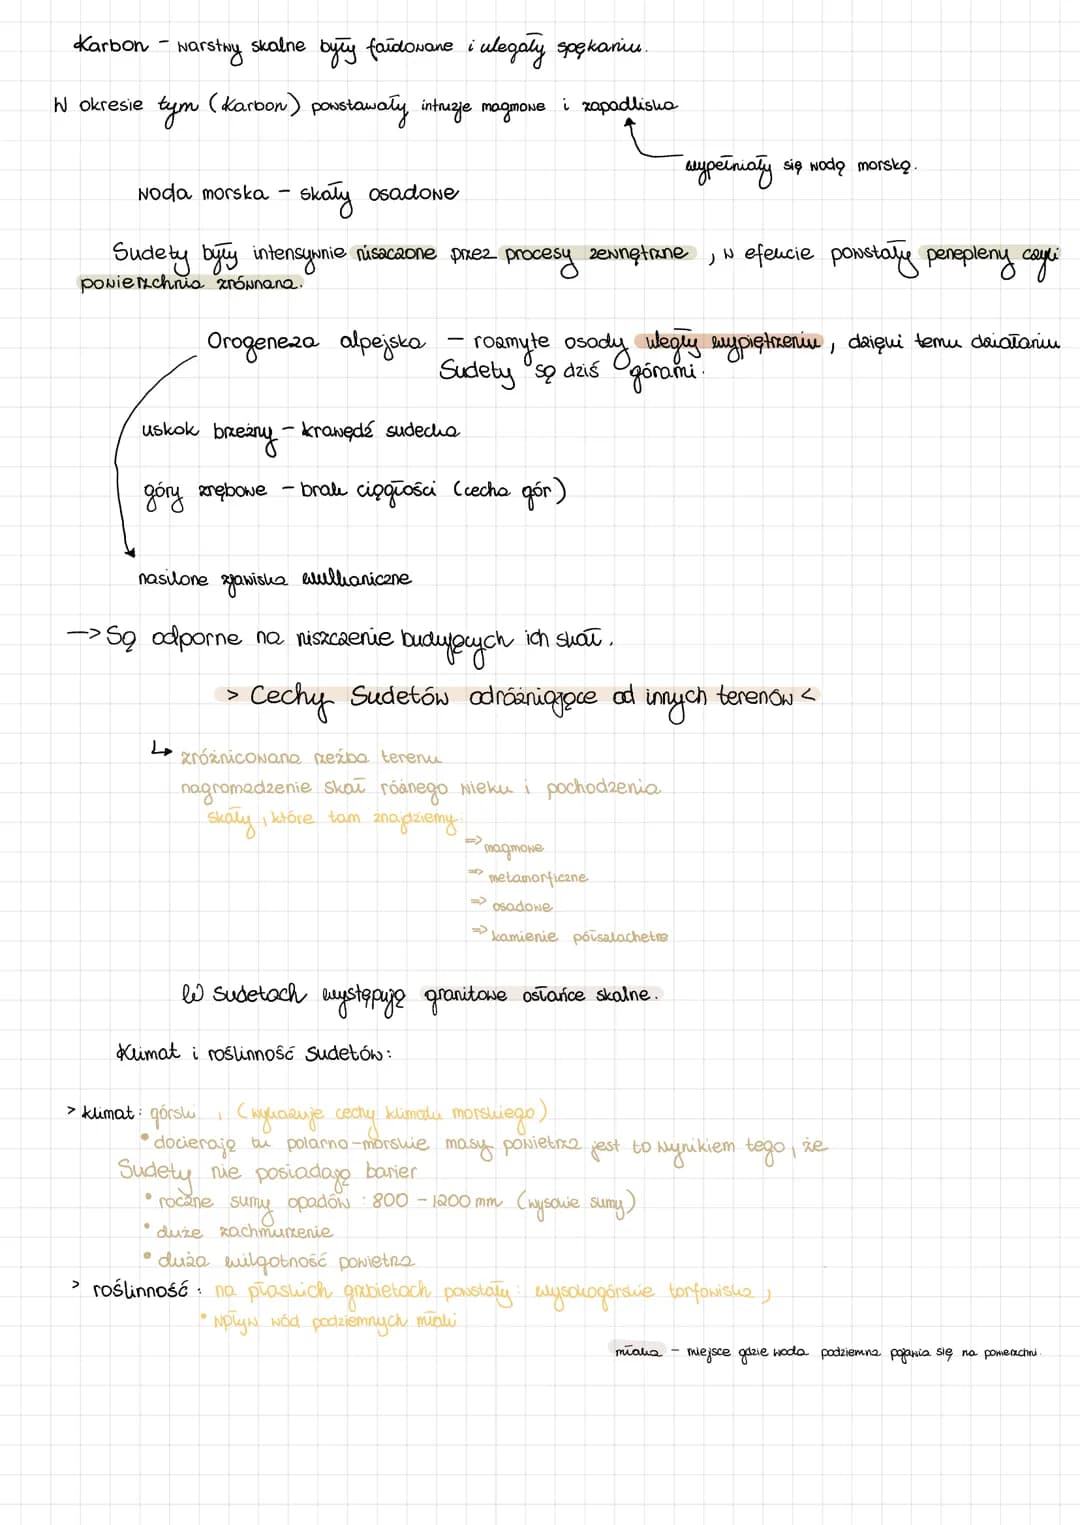 Karbon - warstwy skalne były fałdowane i ulegały spękaniu.
W okresie tym (Karbon) powstawały intruzje magmowe i zapadliska
wypełniały się wodą morską.
woda morska - skały osadowe
Sudety były intensywnie niszczone przez procesy zewnętrzne, w efekcie powstały penepleny czyli
powierzchnia zrównana.
Orogeneza alpejska - rozmyte osady uległy wypiętrzeniu, dzięki temu działaniu
Sudety są dziś górami.
uskok brzeżny - krawędź sudecka
góry zrębowe - brak ciągłości (cecha gór)
nasilone zjawiska wulkaniczne
-> Są odporne na niszczenie budujących ich skał.
> Cechy Sudetów odróżniające od innych terenów <
↳ zróżnicowana rzeźba terenu
nagromadzenie skał różnego wieku i pochodzenia
skały, które tam znajdziemy:
=> magmowe
=> metamorficzne
=> osadowe
=> kamienie półszlachetne
W Sudetach występują granitowe ostańce skalne.
Klimat i roślinność Sudetów:
> klimat: górski, (wykazuje cechy klimatu morskiego)
• docierają tu polarno-morskie masy powietrza jest to wynikiem tego, że
Sudety nie posiadają barier
• roczne sumy opadów: 800 - 1200 mm (wysokie sumy)
• duże zachmurzenie
• duża wilgotność powietrza
> roślinność: na płaskich grzbietach powstały: wysokogórskie torfowiska,
• wpływ wód podziemnych młaki
młaka - miejsce gdzie woda podziemna pojawia się na powierzchni.